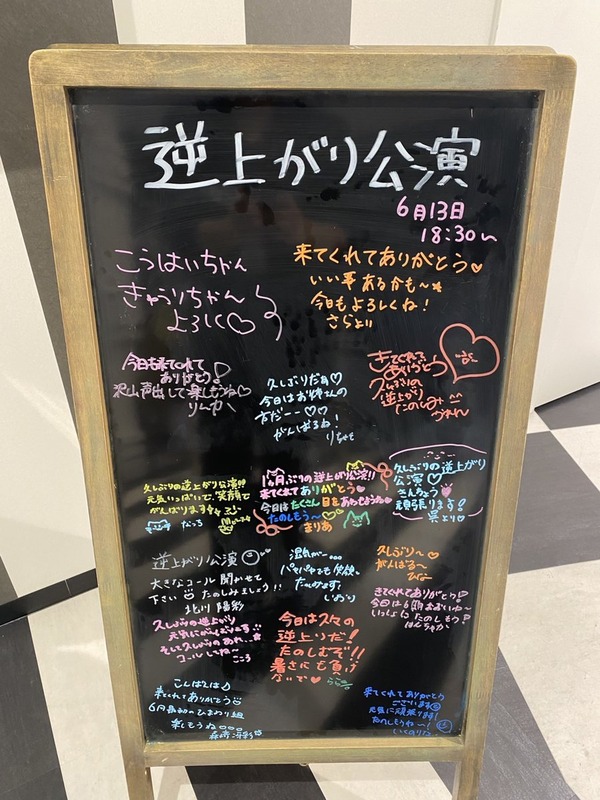 逆上がり公演
6月13日
18:30〜
こうはいちゃん
きゅうりちゃん
よろしく♡
来てくれてありがとう♡
いい事あるかも〜
今日もよろしくね!
さらより
今日も来てくれて
ありがとう!
沢山声出して楽しもうね♡
りんか
久しぶりだね♡
今日はお姉さんの
方だーー♡♡
がんばるね!
きてくれて
ありがとう
久しぶりの
逆上がり
たのしみ
久しぶりの逆上がり公演!!
元気いっぱいで、笑顔で
がんばります
1ヶ月ぶりの逆上がり公演!!
来てくれてありがとう♡
今日はたくさん目をあわせようね
たのしもう〜♡♡
まりあ
久しぶりの逆上がり
公演♡
きんちょう
頑張ります!
逆上がり公演
大きなコール聞かせて
下さい たのしみましょう!!
北川 陽彩
湿気が…
パヤパヤでも笑顔で
たのみます
いおり
久しぶり〜♡
がんばる〜
ひな
久しぶりの逆上がり
元気にがんばります
そして久しぶりのあれ…
コールしてね〜
こころ
今日は久々の
逆上りだ!
たのしむぞ!!
暑さにも負け
ないで♥
ららな
きてくれてありがとう!
今日は6期おおいね〜
いっしょにたのしもう!
こんばんは♪
来てくれてありがとう
6月最初のひまわり組
楽しもうね
来てくれてありがとう
ございます
元気に頑張ります!
たのしもうねー!